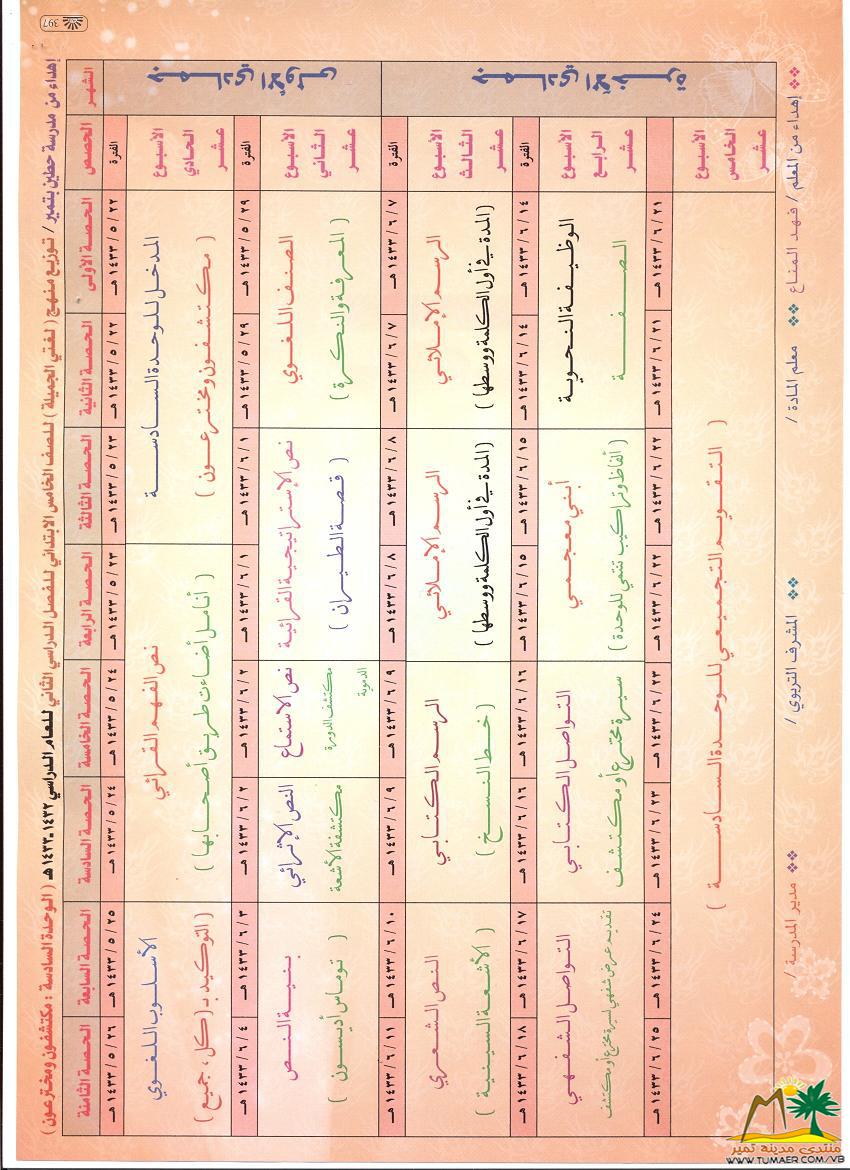 397
إهداء من مدرسة حطين بتمير / توزيع منهج ( لغتي الجميلة ) للصف الخامس الابتدائي للفصل الدراسي الثاني للعام الدراسي ١٤٣٢-١٤٣٣ هـ ( الوحدة السادسة : مكتشفون ومخترعون )
الشهر
جمادي الأولى
جمادي الآخرة
الحصص
الحصة الأولى
الحصة الثانية
الحصة الثالثة
الحصة الرابعة
الحصة الخامسة
الحصة السادسة
الحصة السابعة
الحصة الثامنة
الفترة
٢٢ / ٥ / ١٤٣٣ هـ
٢٢ / ٥ / ١٤٣٣ هـ
٢٣ / ٥ / ١٤٣٣ هـ
٢٣ / ٥ / ١٤٣٣ هـ
٢٤ / ٥ / ١٤٣٣ هـ
٢٤ / ٥ / ١٤٣٣ هـ
٢٥ / ٥ / ١٤٣٣ هـ
٢٦ / ٥ / ١٤٣٣ هـ
الأسبوع
الحادي
عشر
المدخل للوحدة السادسة
( مكتشفون ومخترعون )
نص الفهم القرائي
( أنامل أضاءت طريق أصحابها )
الأسلوب اللغوي
( التوكيد بـ ( كل ، جميع )
الفترة
٢٩ / ٥ / ١٤٣٣ هـ
٢٩ / ٥ / ١٤٣٣ هـ
١ / ٦ / ١٤٣٣ هـ
١ / ٦ / ١٤٣٣ هـ
٢ / ٦ / ١٤٣٣ هـ
٢ / ٦ / ١٤٣٣ هـ
٣ / ٦ / ١٤٣٣ هـ
٤ / ٦ / ١٤٣٣ هـ
الأسبوع
الثاني
عشر
الصنف اللغوي
( المعرفة والنكرة )
نص الإستراتيجية القرائية
( قصة الطيران )
نص الاستماع
مكتشف الدورة
الدموية
النص الإثرائي
مكتشفة الأشعة
بنية النص
( توماس أديسون )
الفترة
٧ / ٦ / ١٤٣٣ هـ
٧ / ٦ / ١٤٣٣ هـ
٨ / ٦ / ١٤٣٣ هـ
٨ / ٦ / ١٤٣٣ هـ
٩ / ٦ / ١٤٣٣ هـ
٩ / ٦ / ١٤٣٣ هـ
١٠ / ٦ / ١٤٣٣ هـ
١١ / ٦ / ١٤٣٣ هـ
الأسبوع
الثالث
عشر
الرسم الإملائي
( المدة في أول الكلمة ووسطها )
الرسم الإملائي
( المدة في أول الكلمة ووسطها )
الرسم الكتابي
( خط النسخ )
النص الشعري
( الأشعة السينية )
الفترة
١٤ / ٦ / ١٤٣٣ هـ
١٤ / ٦ / ١٤٣٣ هـ
١٥ / ٦ / ١٤٣٣ هـ
١٥ / ٦ / ١٤٣٣ هـ
١٦ / ٦ / ١٤٣٣ هـ
١٦ / ٦ / ١٤٣٣ هـ
١٧ / ٦ / ١٤٣٣ هـ
١٨ / ٦ / ١٤٣٣ هـ
الأسبوع
الرابع
عشر
الوظيفة النحوية
الصفة
أبني معجمي
( ألفاظ وتراكيب تنتمي للوحدة )
التواصل الكتابي
سيرة مخترع أو مكتشف
التواصل الشفهي
تقديم عرض شفهي لسيرة مخترع أو مكتشف
٢١ / ٦ / ١٤٣٣ هـ
٢١ / ٦ / ١٤٣٣ هـ
٢٢ / ٦ / ١٤٣٣ هـ
٢٢ / ٦ / ١٤٣٣ هـ
٢٣ / ٦ / ١٤٣٣ هـ
٢٣ / ٦ / ١٤٣٣ هـ
٢٤ / ٦ / ١٤٣٣ هـ
٢٥ / ٦ / ١٤٣٣ هـ
الأسبوع
الخامس
عشر
( التقويم التجميعي للوحدة السادسة )
إهداء من المعلم / فهد المناع
معلم المادة /
المشرف التربوي /
مدير المدرسة /
منتدى مدينة تمير
WWW.TUMAER.COM/VB